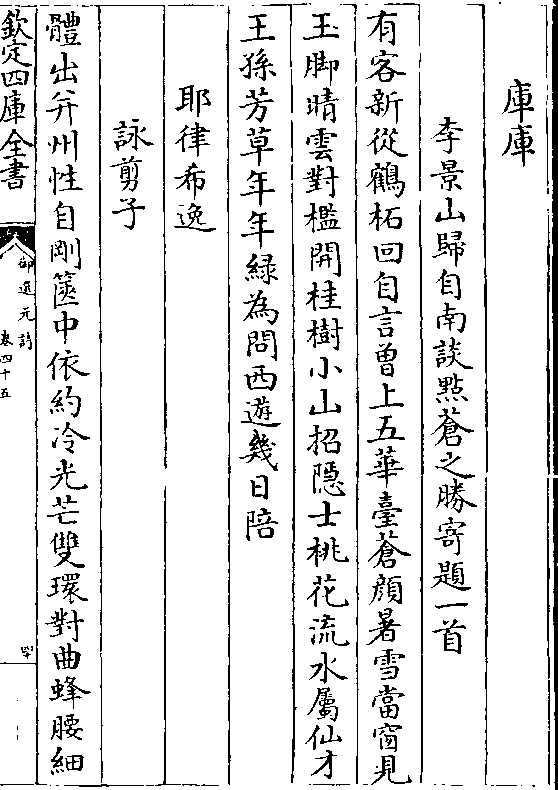 庫庫
李景山歸自南談點蒼之勝寄題一首
有客新從鶴柘回自言曾上五華臺蒼顔暑雪當窗見
玉脚晴雲對檻開桂樹小山招隠士桃花流水屬仙才
王孫芳草年年緑為問西遊幾日陪
耶律希逸
詠剪子
體出并州性自剛篋中依約冷光芒雙環對曲蜂腰細
欽定四庫全書
御選元詩
卷四十五